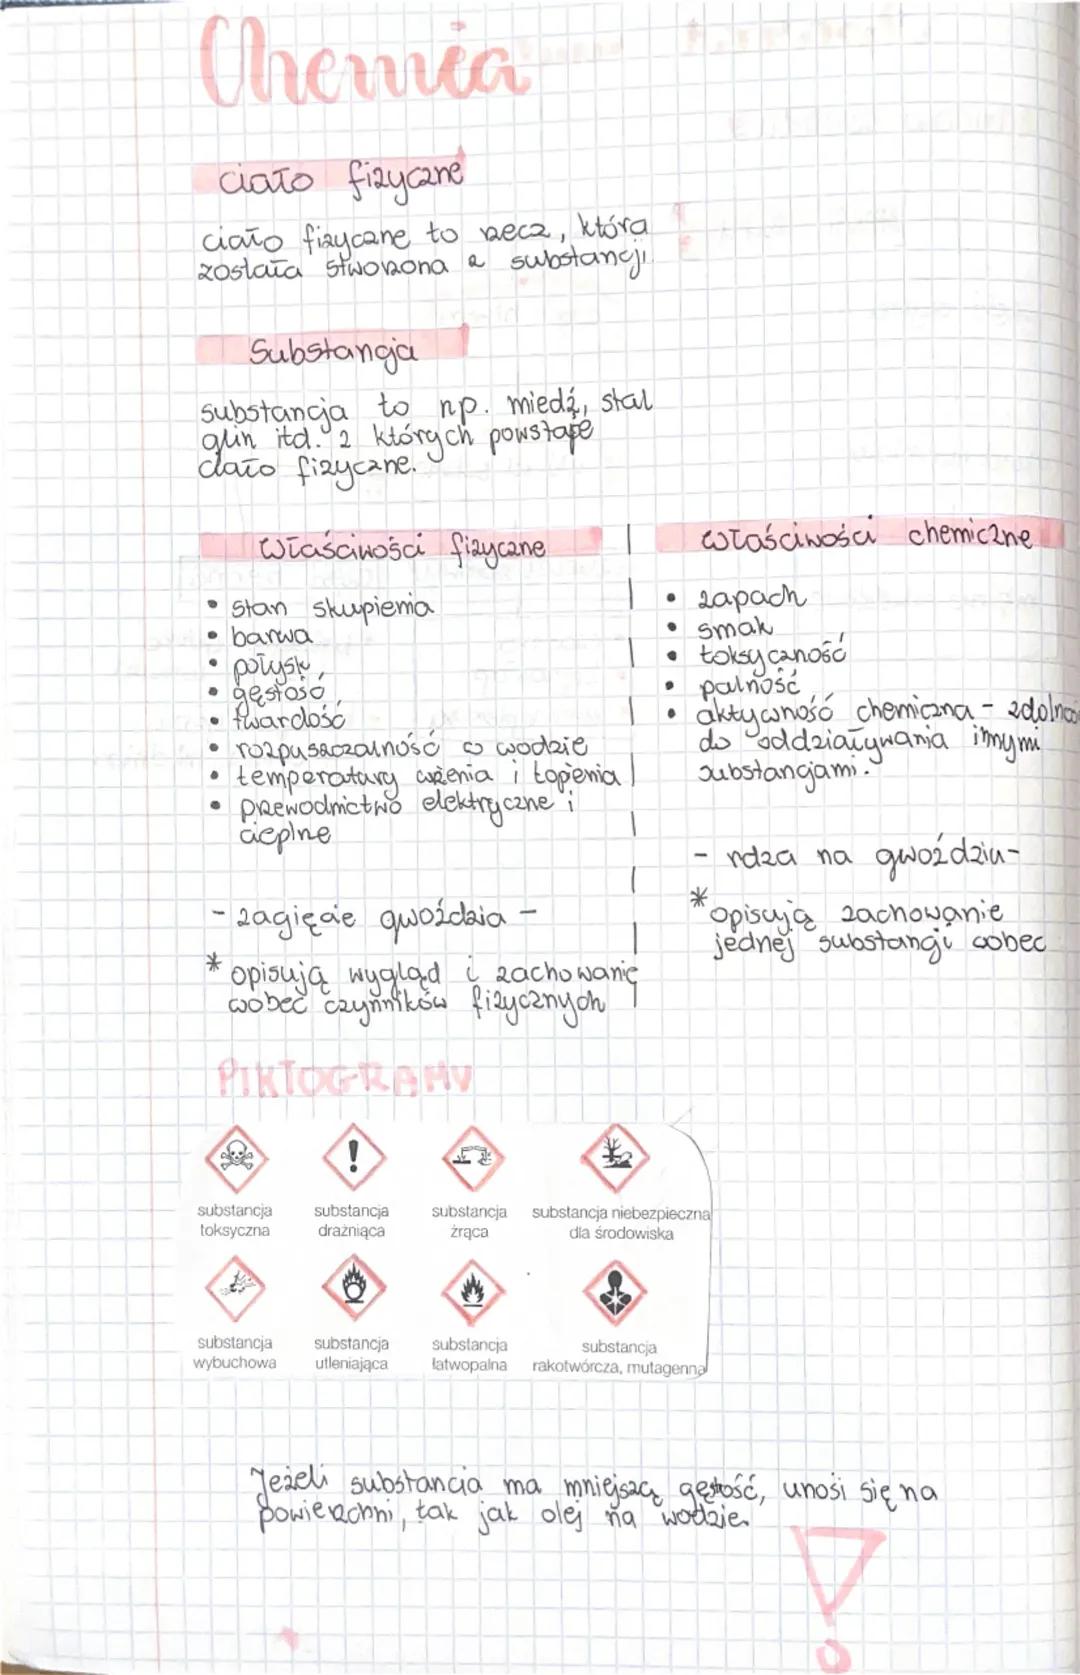 Chemia
ciało fizyczne
ciało fizyczne to rzecz, która
została stworzona z substancji
Substancja
substancja to np. miedź, stal
glin itd. z których powstaje
ciało fizyczne.
właściwości fizyczne
• stan skupienia
• barwa
• połysk
• gęstość
• twardość
• rozpuszczalność w wodzie
• temperatury wrzenia i topienia
• przewodnictwo elektryczne i
cieplne
- zagięcie gwoździa -
* opisują wygląd i zachowanie
wobec czynników fizycznych
właściwości chemiczne
• zapach
• smak
• toksyczność
• palność
• aktywność chemiczna - zdolność
do oddziaływania innymi
substancjami.
- rdza na gwoździu-
* opisują zachowanie
jednej substancji wobec
PIKTOGRAMY
substancja
toksyczna
substancja
drażniąca
substancja
żrąca
substancja niebezpieczna
dla środowiska
substancja
wybuchowa
substancja
utleniająca
substancja
łatwopalna
substancja
rakotwórcza, mutagenna
Jeżeli substancja ma mniejszą gęstość, unosi się na
powierzchni, tak jak olej na wodzie.